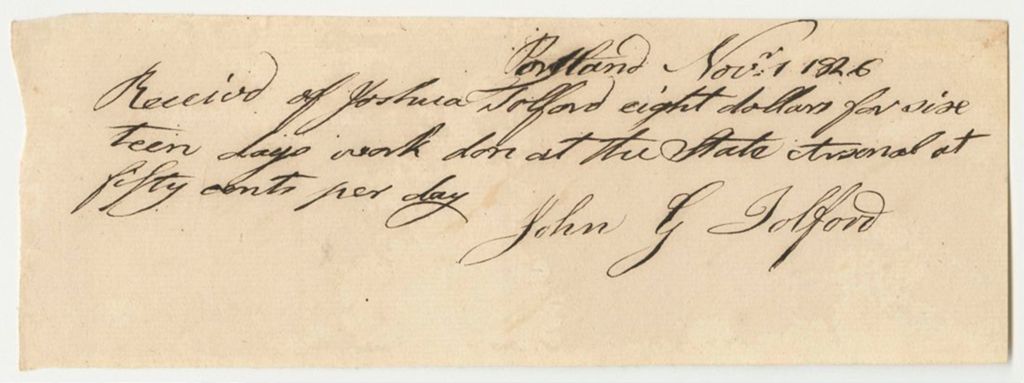 Portland Novr. 1 1826
Receivd of Joshua Tolford eight dollars for six
teen days work don at the State Arsenal at
fifty cents per day
John G Tolford